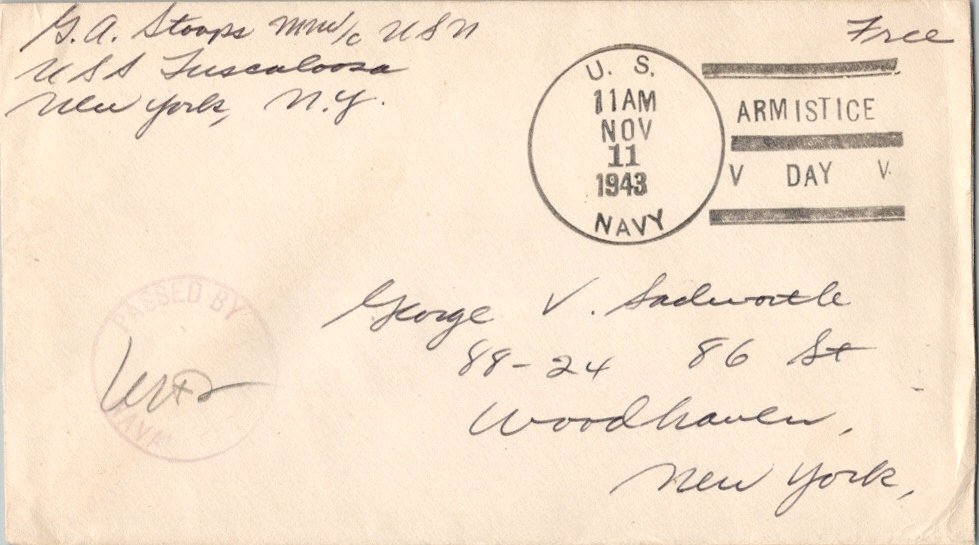 G. A. Stoops MM1/c USN
USS Tuscaloosa
New York, N.Y.
Free
U. S.
11AM
NOV
11
1943
NAVY
ARMISTICE
V DAY V
PASSED BY
NAVAL
George V. Sadworth
88-24 86 St
Woodhaven,
New York,